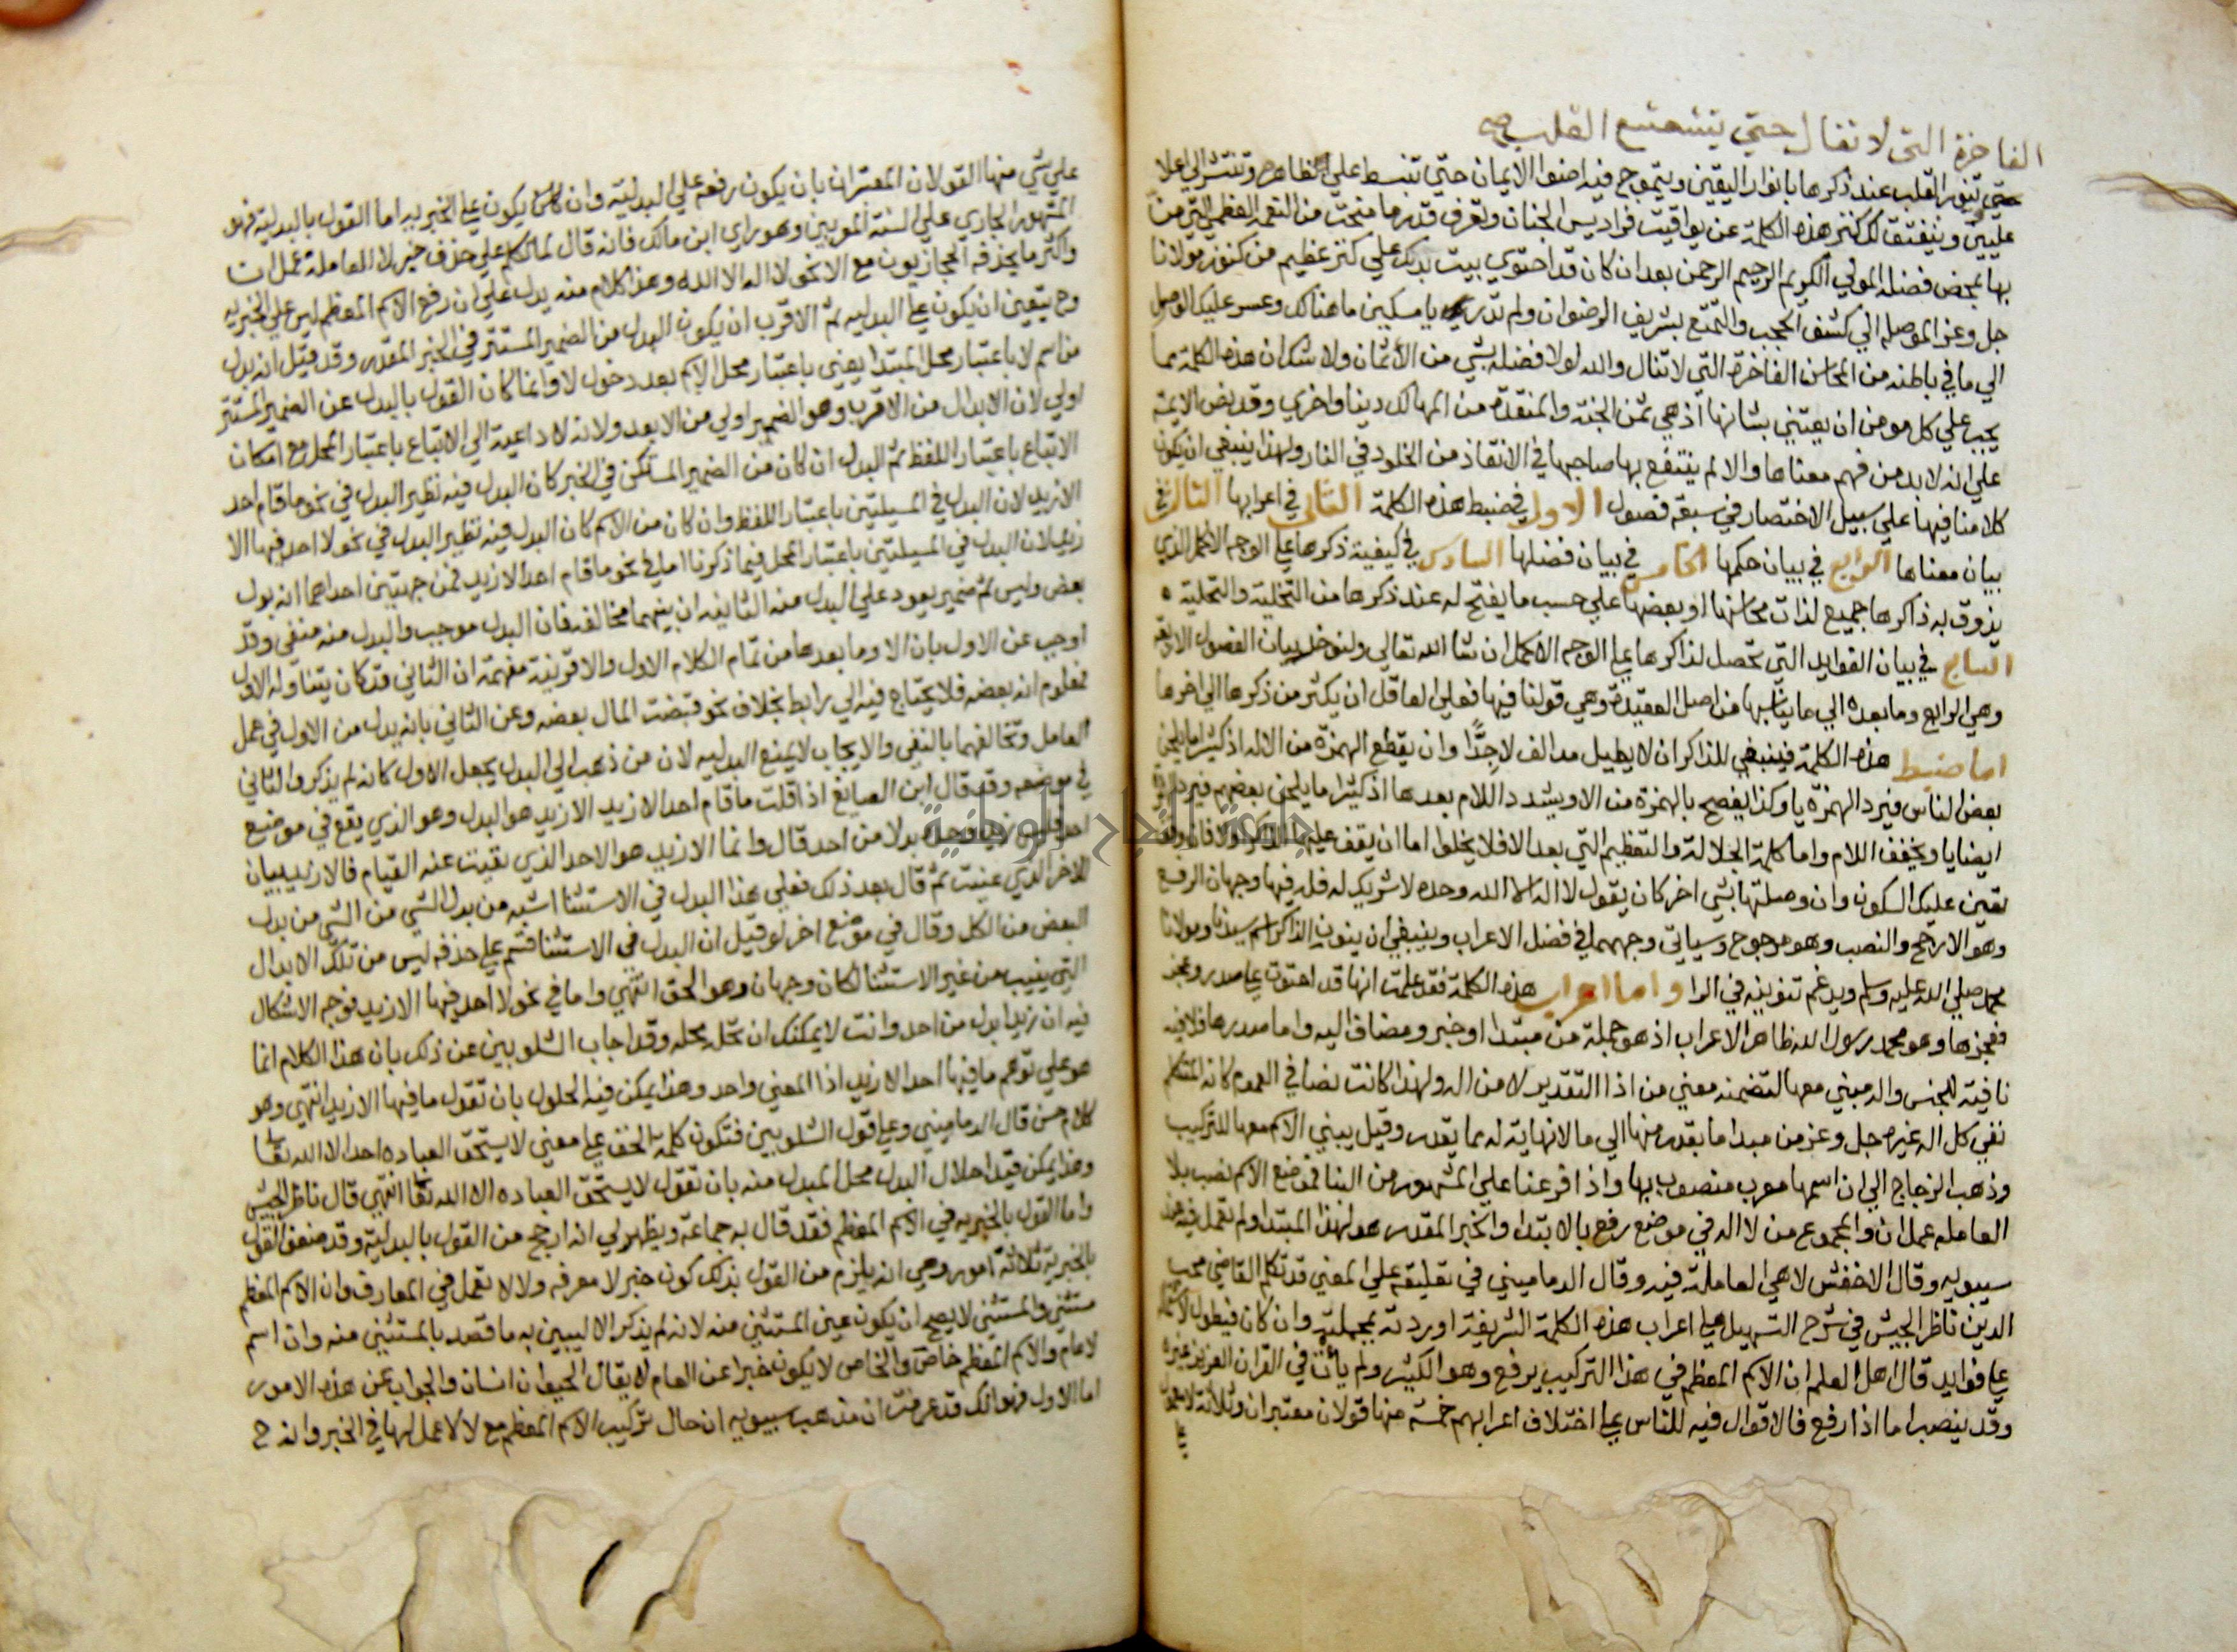 الفاخرة التى لا تنال حتي يتشعشع القلب
حتي يتنور القلب عند ذكرها بانوار اليقين ويتموج فيه اضوا الايمان حتي تنبسط علي الظاهر وتنتشر الي اعلا
عليين وينفتق لك كنز هذه الكلمة عن يواقيت فراديس الجنان وتعرف قدر ما منحت من النعمه العظمي التي من
بها بمحض فضله المولي الكريم الرحيم الرحمن بعد ان كان قد احتوي بيت بدنك علي كنز عظيم من كنوز مولانا
جل وعز الموصله الي كشف الحجب والتمتع بشريف الرضوان ولم تدر يا مسكين ما هنالك وعسر عليك الوصول
الي ما في باطنه من المحاسن الفاخرة التي لا تنال والله لولا فضله بشي من الاثمان ولا شك ان هذه الكلمة مما
يجب علي كل مومن ان يعتني بشانها اذ هي ثمن الجنة والمنقذة من المهالك دينا واخري وقد نص الايمة
علي انه لا بد من فهم معناها والا لم ينتفع بها صاحبها في الانقاذ من الخلود في النار ولهذا ينبغي ان يكون
كلامنا فيها علي سبيل الاختصار في سبعة فصول الاول في ضبط هذه الكلمة الثاني في اعرابها الثالث في
بيان معناها الرابع في بيان حكمها الخامس في بيان فضلها السادس في كيفية ذكرها علي الوجه الاكمل الذي
يذوق به ذاكرها جميع لذات محاسنها او بعضها علي حسب ما يفتح له عند ذكرها من التخلية والتحلية ه
السابع في بيان الفوايد التي تحصل لذاكرها علي الوجه الاكمل ان شا الله تعالي ولنوخر بيان الفصول الاربعة
وهي الرابع وما بعده الي ما يناسبها من اصل العقيدة وهي قولنا فيها فعلي العاقل ان يكثر من ذكرها الي اخرها
اما ضبط هذه الكلمة فينبغي للذاكر ان لا يطيل مد الف لا جِدًّا وان يقطع الهمزة من اله اذ كثيرا ما يلحن
بعض الناس فيرد الهمزة يا وكذا يفصح بالهمزة من الا ويشدد اللام بعدها اذ كثيرا ما يلحن بعضهم فيرد الهمزة
ايضا يا ويخفف اللام واما كلمة الجلالة والتعظيم التي بعد الا فلا يخلوا اما ان يقف عليها الذاكر اولا فان وقف
تعين عليك السكون وان وصلتها بشي اخر كان يقول لا اله الا الله وحده لا شريك له فله فيها وجهان الرفع
وهو الارجح والنصب وهو مرجوح وسياتي وجههما في فضل الاعراب وينبغي ان ينون الذاكر اسم سيدنا ومولانا
محمد صلي الله عليه وسلم ويدغم تنوينه في الرا واما اعراب هذه الكلمة فقد علمت انها قد احتوت علي صدر وعجز
فعجزها وهو محمد رسول الله ظاهر الاعراب اذ هو جملة من مبتدا او خبر ومضاف اليه واما صدرها فلا فيه
نافية للجنس واله مبني معها لتضمنه معني من اذا التقدير لا من اله ولهذا كانت نصا في العموم كانه المتكلم
نفي كل اله غيره جل وعز من مبدا ما يقدر منها الي ما لا نهاية له مما يقدر وقيل يبني الاسم معها للتركيب
وذهب الزجاج الي ان اسمها معرب منصوب بها واذا فرعنا علي المشهور من البنا فموضع الاسم نصب بلا
العامله عمل ان والمجموع من لا اله في موضع رفع بالابتدا والخبر المقدر هو لهذا المبتدا ولم تعمل فيه عند
سيبويه وقال الاخفش لا هي العاملة فيه وقال الدماميني في تعليقه علي المغني قد تكلم القاضي محب
الدين ناظر الجيش في شرح التسهيل علي اعراب هذه الكلمة الشريفة اوردته بجملته وان كان فيطول لاشتماله
علي فوايد قال اهل العلم ان الاسم المعظم في هذا التركيب يرفع وهو الكثير ولم يات في القران العزيز غيره
وقد ينصب اما اذا رفع فالاقوال فيه للناس علي اختلاف اعرابهم خمسة منها قولان معتبران وثلاثة لا معول
علي شي منها القولان المعتبران بان يكون رفعه علي البدلية وان يكون علي الخبريه اما القول بالبدلية فهو
المشهور الجاري علي السنة المعربين وهو راي ابن مالك فانه قال لما تكلم علي حذف خبر لا العاملة عمل ان
واكثر ما يحذفه الحجازيون مع الا نحو لا اله الا الله وهذا كلام منه يدل علي ان رفع الاسم المعظم ليس علي الخبريه
وح يتعين ان يكون علي البدليه ثم الاقرب ان يكون البدل من الضمير المستتر في الخبر المقدر وقد قيل انه بدل
من اسم لا باعتبار محل المبتدا يعني باعتبار محل الاسم بعد دخول لا وانما كان القول بالبدل عن الضمير المستتر
اولي لان الابدال من الاقرب وهو الضمير اولي من الابعد ولانه لا داعية الي الاتباع باعتبار المحل مع امكان
الاتباع باعتبار اللفظ ثم البدل ان كان من الضمير المستكن في الخبر كان البدل فيه نظير البدل في نحو ما قام احد
الا زيد لان البدل في المسيلتين باعتبار اللفظ وان كان من الاسم كان البدل فيه نظير البدل في نحو لا احد فيها الا
زيد لان البدل في المسيلتين باعتبار المحل فيما ذكرنا اما في نحو ما قام احد الا زيد فمن جهتين احداهما انه بدل
بعض وليس ثم ضمير يعود علي البدل منه الثانيه ان بينهما مخالفه فان البدل موجب والبدل منه منفي وقد
اوجب عن الاول بان الا وما بعدها من تمام الكلام الاول والا قرينة مفهمة ان الثاني قد كان يتناوله الاول
فمعلوم انه بعضه فلا يحتاج فيه الي رابط بخلاف نحو قبضت المال بعضه وعن الثاني بانه بدل من الاول في عمل
العامل وتخالفهما بالنفي والايجاب لا يمنع البدليه لان من ذهب الي البدل يجعل الاول كانه لم يذكر والثاني
في موضعه وقد قال ابن الصايغ اذا قلت ما قام احد الا زيد الا زيد هو البدل وهو الذي يقع في موضع
احد فليس زيد وحده بدلا من احد قال وانما الا زيد هو الاحد الذي نقيت عنه القيام فالا زيد بيان
للاخر الذي عنيت ثم قال بعد ذلك فعلي هذا البدل في الاستثنا اشبه من بدل الشي من الشي من بدل
البعض من الكل وقال في موضع اخر لو قيل ان البدل في الاستثنا قسم علي حذفه ليس من تلك الابدال
التي يبيب من غير الاستثنا لكان وجهان وهو الحق انتهي واما في نحو لا احد فيها الا زيد فوجه الاشكال
فيه ان زيدا بدل من احد وانت لا يمكنك ان تحله محله وقد اجاب الشلوبين عن ذلك بان هذا الكلام انما
هو علي توهم ما فيها احد الا زيد اذا المعني واحد وهذا يمكن فيه الحلول بان تقول ما فيها الا زيد انتهي وهو
كلام حسن قال الدماميني وعلي قول الشلوبين فتكون كلمة الحق علي معني لا يستحق العباده احد الا الله تعا
وهذا يمكن فيه احلال البدل محل المبدل منه بان تقول لا يستحق العباده الا الله تعا انتهي قال ناظر الجيش
واما القول بالخبريه في الاسم المعظم فقد قال به جماعة ويظهر لي انه ارجح من القول بالبدلية وقد ضعف القول
بالخبرية ثلاثة امور وهي انه يلزم من القول بذلك كون خبر لا معرفه ولا لا تعمل في المعارف وان الاسم المعظم
مستثني والمستثني لا يصح ان يكون عين المستثني منه لانه لم يذكر الا ليبين به ما قصد بالمستثني منه وان اسم
لا عام والاسم المعظم خاص والخاص لا يكون خبرا عن العام لا يقال الحيوان انسان والجواب عن هذه الامور
اما الاول فهو انك قد عرفت ان مذهب سيبويه ان حال تركيب الاسم المعظم مع لا لا عمل لها في الخبر وانه ح
جامعة النجاح الوطنية